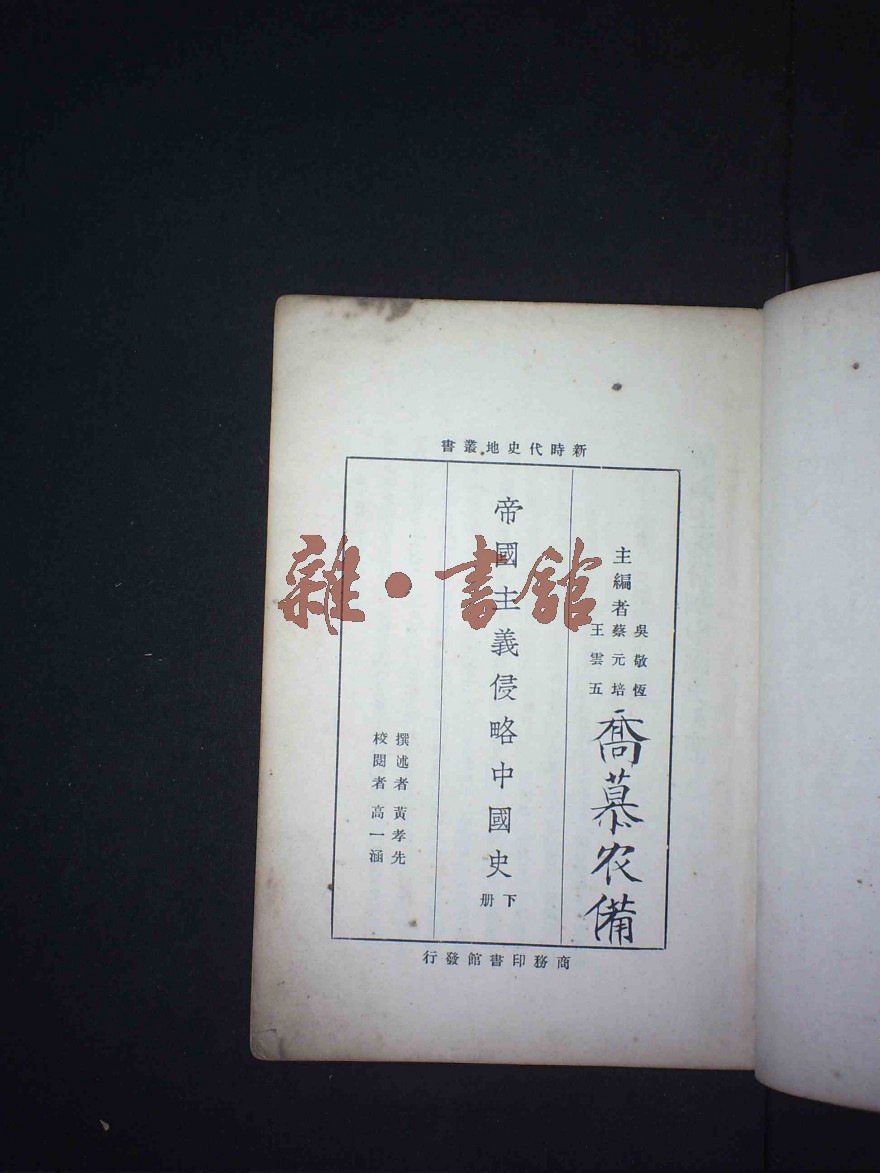 新時代史地叢書
主編者
吳敬恆
蔡元培
王雲五
喬慕农備
帝國主義侵略中國史
下册
撰述者 黃孝先
校閱者 高一涵
商務印書館發行
雜·書館